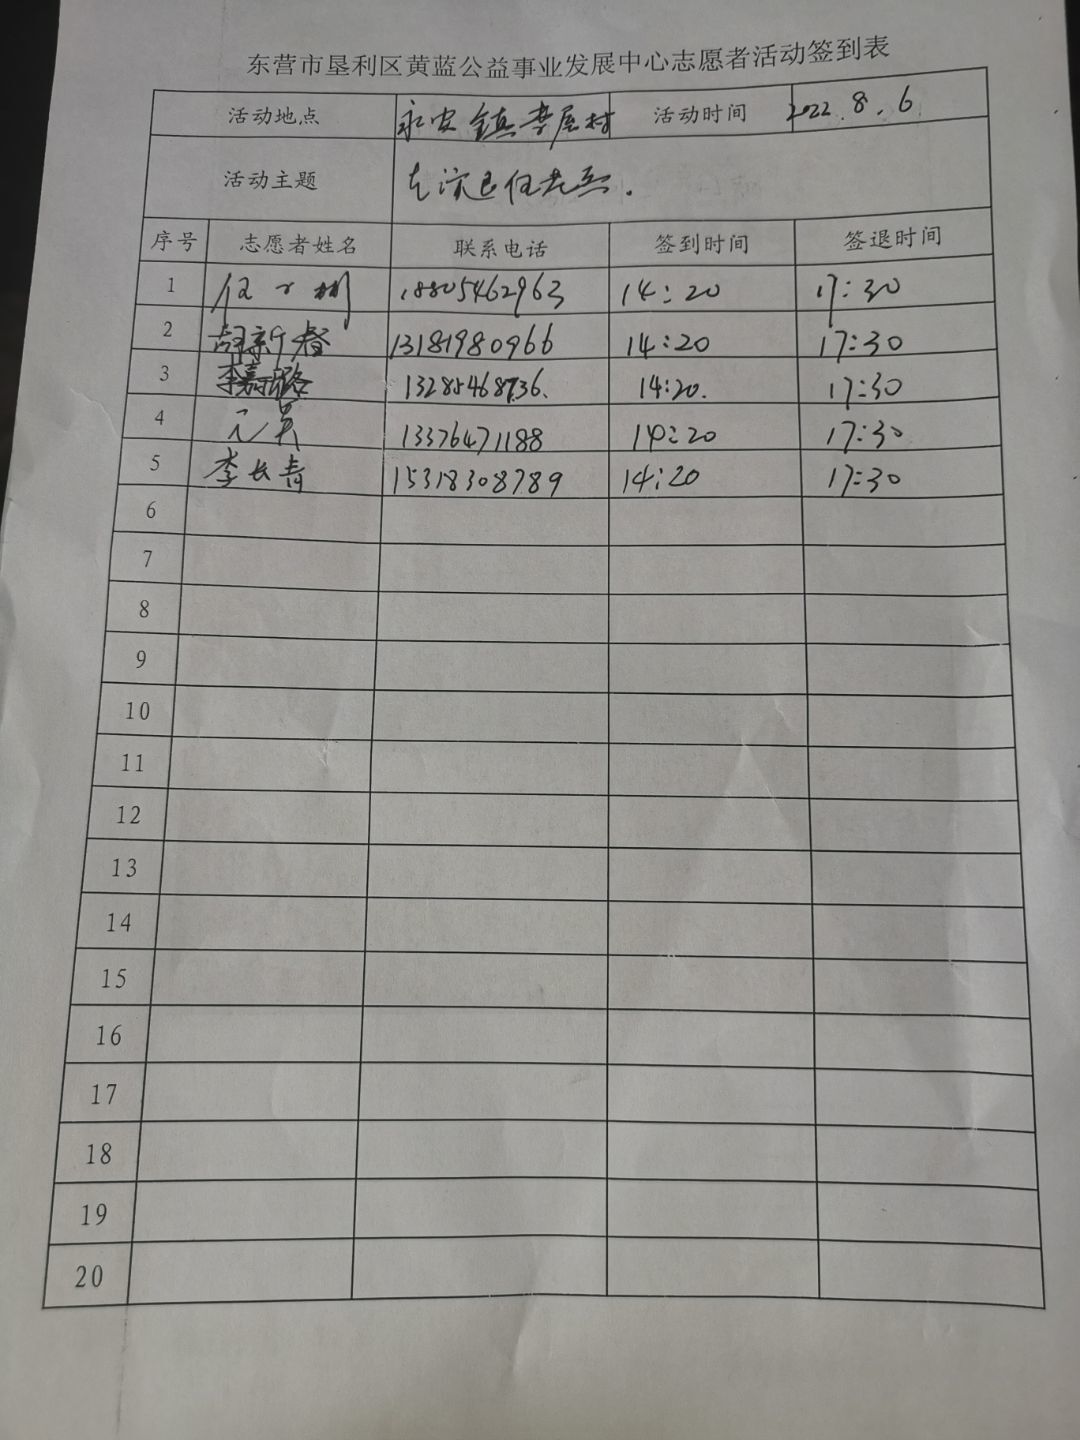 东营市垦利区黄蓝公益事业发展中心志愿者活动签到表
活动地点 永安镇李屋村 活动时间 2022.8.6
活动主题
序号 志愿者姓名 联系电话 签到时间 签退时间
1 18805462963 14:20 17:30
2 胡新春 13181980966 14:20 17:30
3 李嘉璐 14:20. 17:30
4 13376471188 14:20 17:30
5 李长青 15318308789 14:20 17:30
6
7
8
9
10
11
12
13
14
15
16
17
18
19
20